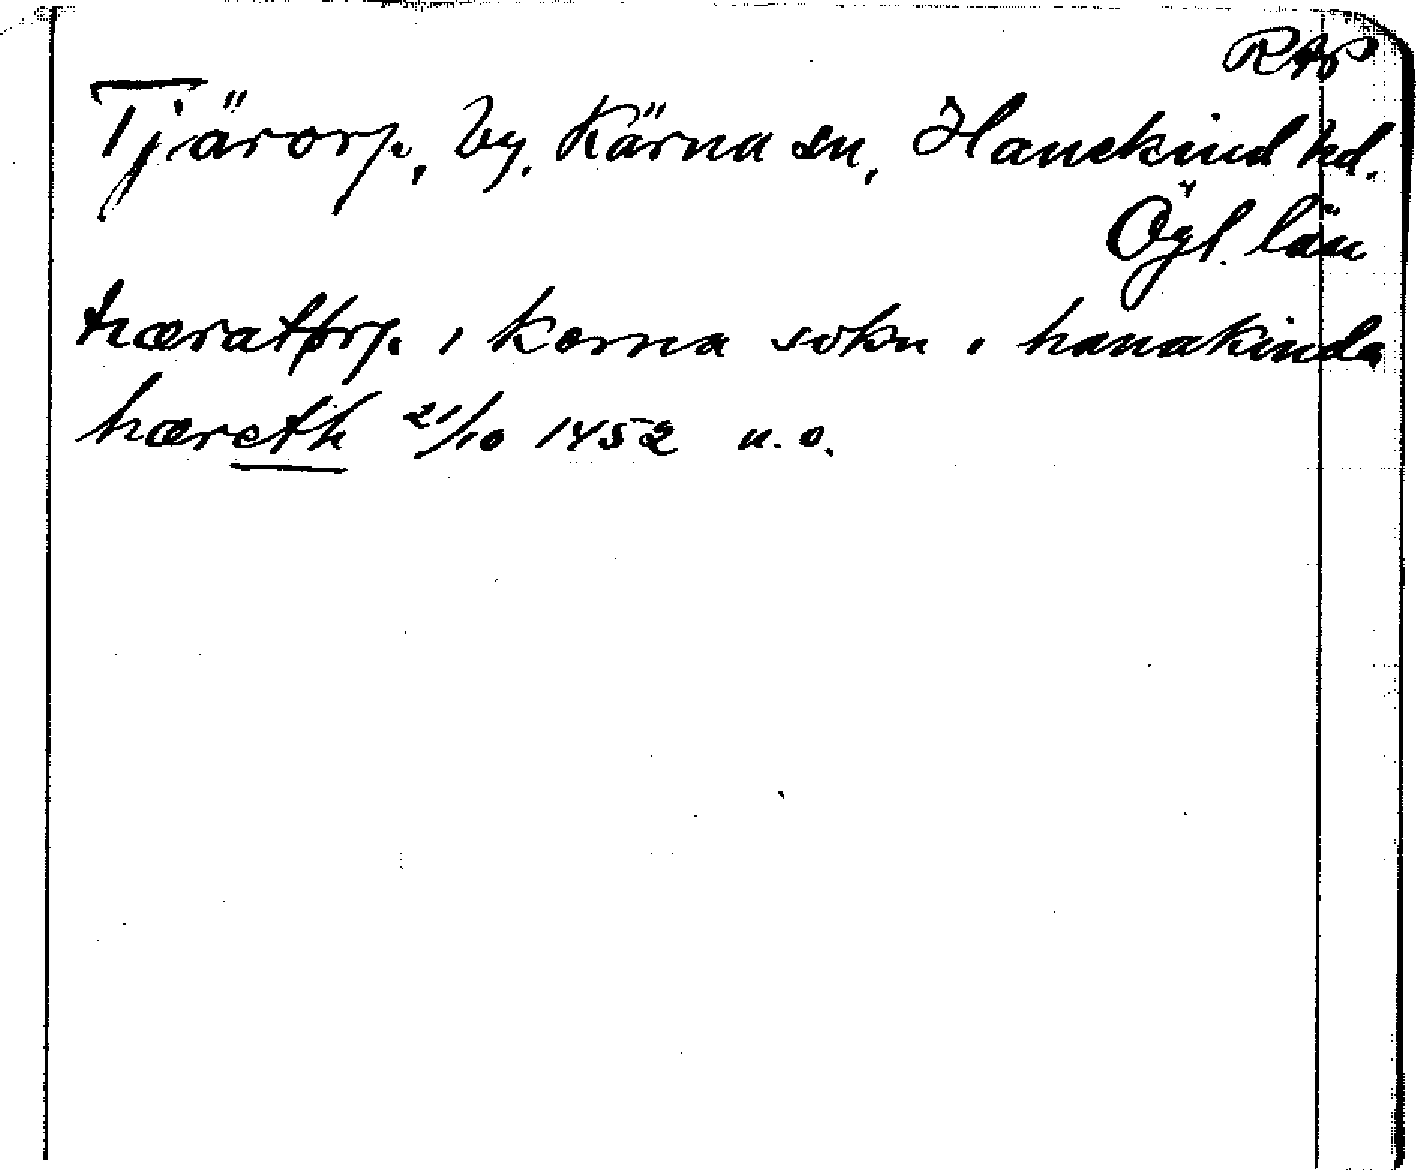 RAP
Tjärorp, by, Kärna sn, Hanekind hd.
Ögl. län
hæratþorp i kærna sokn i hanakinda
hæreth 21/10 1452 u.o.